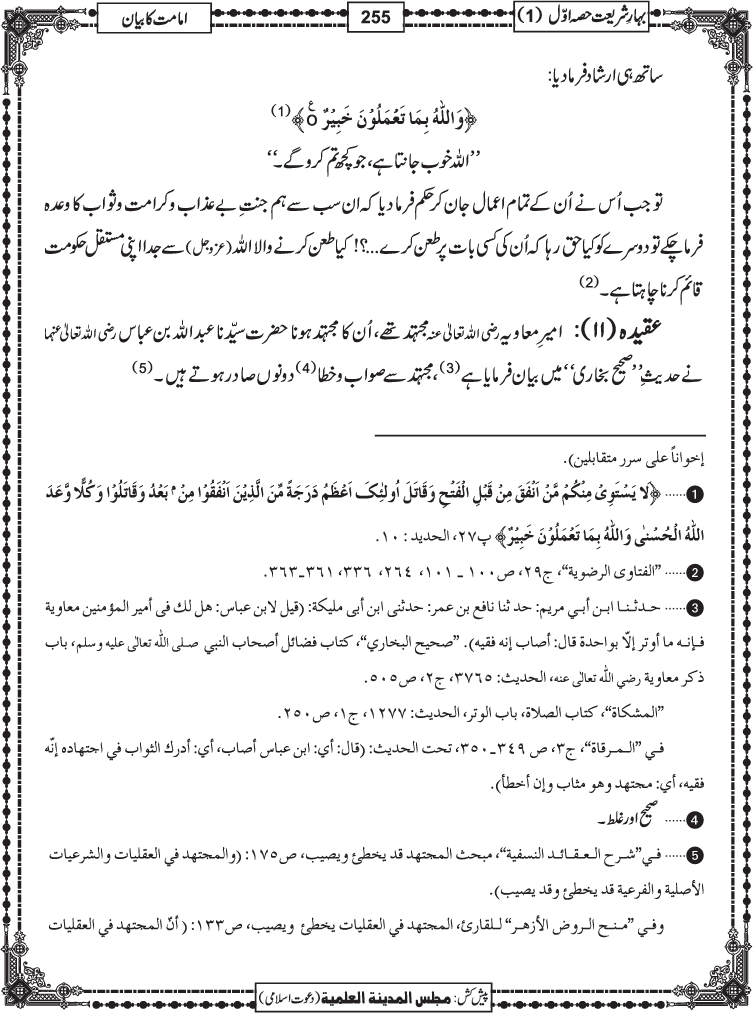 بہارِ شریعت حصہ اوّل (1)
255
امامت کا بیان
ساتھ ہی ارشاد فرما دیا:
﴿وَاللّٰهُ بِمَا تَعْمَلُوْنَ خَبِیْرٌ ۠﴾ (1)
’’اللہ خوب جانتا ہے، جو کچھ تم کرو گے۔‘‘
تو جب اُس نے اُن کے تمام اعمال جان کر حکم فرما دیا کہ ان سب سے ہم جنتِ بے عذاب و کرامت و ثواب کا وعدہ
فرما چکے تو دوسرے کو کیا حق رہا کہ اُن کی کسی بات پر طعن کرے...؟! کیا طعن کرنے والا اللہ (عزوجل) سے جدا اپنی مستقل حکومت
قائم کرنا چاہتا ہے۔ (2)
عقیدہ (۱۱): امیرِ معاویہ رضی اللہ تعالیٰ عنہ مجتہد تھے، اُن کا مجتہد ہونا حضرت سیّدنا عبد اللہ بن عباس رضی اللہ تعالیٰ عنہما
نے حدیثِ ’’صحیح بخاری‘‘ میں بیان فرمایا ہے (3)، مجتہد سے صواب و خطا (4) دونوں صادر ہوتے ہیں۔ (5)
إخواناً على سرر متقابلين).
1 ...... ﴿لَا یَسْتَوِیْ مِنْكُمْ مَّنْ اَنْفَقَ مِنْ قَبْلِ الْفَتْحِ وَقَاتَلَ اُولٰٓئِكَ اَعْظَمُ دَرَجَةً مِّنَ الَّذِیْنَ اَنْفَقُوْا مِنْۢ بَعْدُ وَقَاتَلُوْا وَكُلًّا وَّعَدَ
اللّٰهُ الْحُسْنٰی وَاللّٰهُ بِمَا تَعْمَلُوْنَ خَبِیْرٌ﴾ پ۲۷، الحدید: ۱۰.
2 ...... ”الفتاوى الرضوية“، ج۲۹، ص۱۰۰ ـ ۱۰۱، ۲٦٤، ۳۳٦، ۳٦۱ـ۳٦۳.
3 ...... حدثنا ابن أبي مريم: حدثنا نافع بن عمر: حدثنى ابن أبى مليكة: (قيل لابن عباس: هل لك فى أمير المؤمنين معاوية
فإنه ما أوتر إلّا بواحدة قال: أصاب إنه فقيه). ”صحيح البخاري“، كتاب فضائل أصحاب النبي صلى الله تعالى عليه وسلم، باب
ذكر معاوية رضي الله تعالى عنه، الحديث: ۳۷٦٥، ج۲، ص٥۰٥.
”المشكاة“، كتاب الصلاة، باب الوتر، الحديث: ۱۲۷۷، ج۱، ص۲٥۰.
في ”المرقاة“، ج۳، ص ۳٤۹ـ۳٥۰، تحت الحديث: (قال: أي: ابن عباس أصاب، أي: أدرك الثواب في اجتهاده إنّه
فقيه، أي: مجتهد وهو مثاب وإن أخطأ).
4 ...... صحیح اور غلط۔
5 ...... في ”شرح العقائد النسفية“، مبحث المجتهد قد يخطئ ويصيب، ص۱۷٥: (والمجتهد في العقليات والشرعيات
الأصلية والفرعية قد يخطئ وقد يصيب).
وفي ”منح الروض الأزهر“ للقارئ، المجتهد في العقليات يخطئ ويصيب، ص۱۳۳: (أنّ المجتهد في العقليات
پیش کش: مجلس المدينة العلمية (دعوت اسلامی)